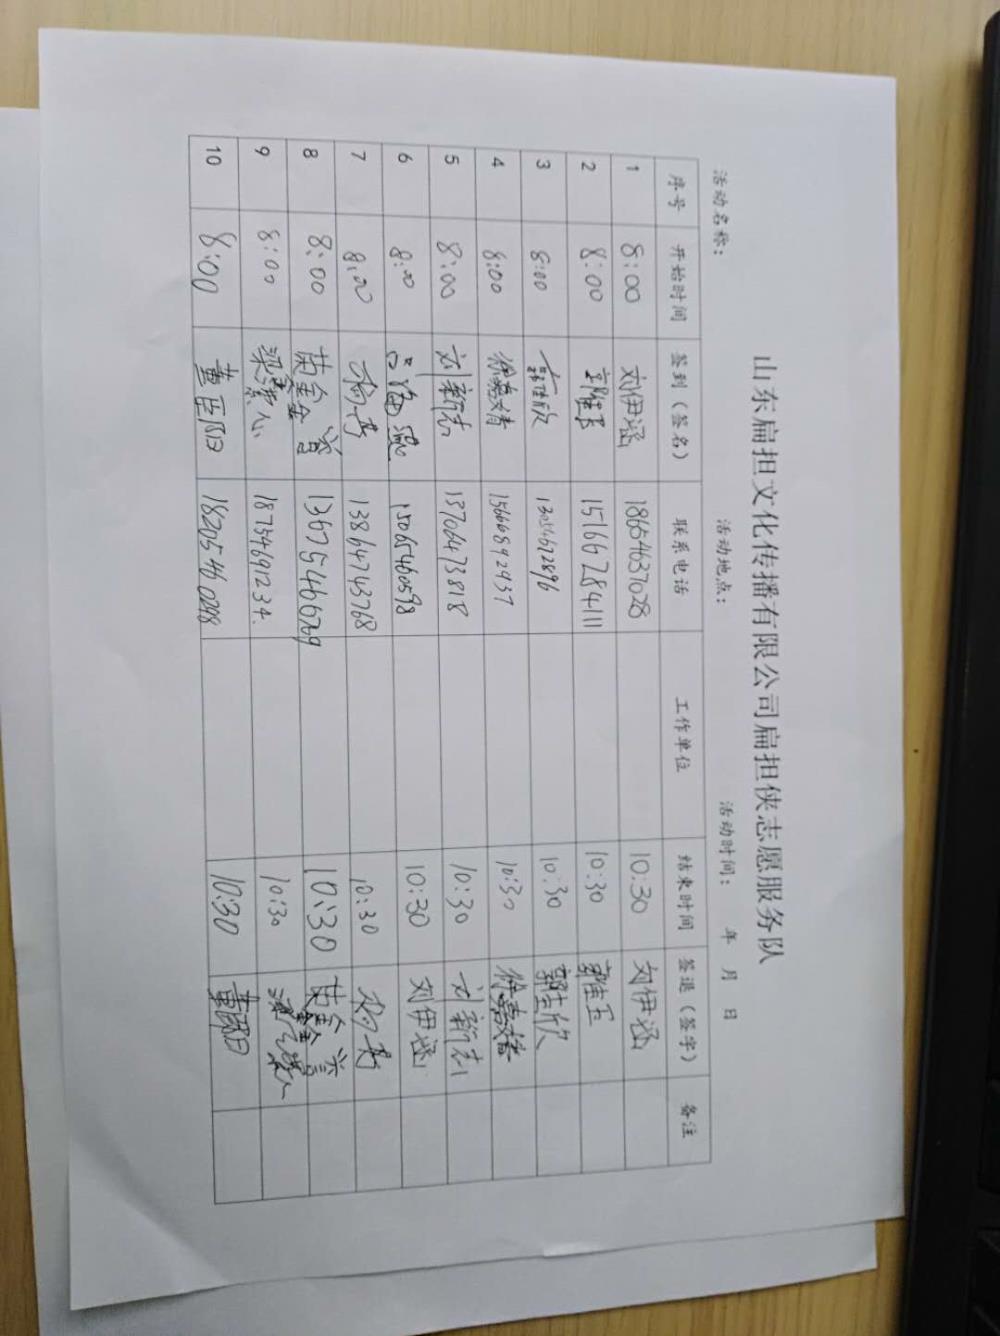 山东扁担文化传播有限公司扁担侠志愿服务队
活动名称： 活动地点： 活动时间： 年 月 日
序号 开始时间 签到（签名） 联系电话 工作单位 结束时间 签退（签字） 备注
1 8:00 刘伊涵 18654637028 10:30 刘伊涵
2 8:00 15166728411 10:30
3 8:00 郭佳欣 10:30 郭佳欣
4 8:00 徐嘉婧 15666892937 10:30 徐嘉婧
5 8:00 刘新志 13706473818 10:30 刘新志
6 8:00 15065460598 10:30 刘伊涵
7 8:00 13864743768 10:30
8 8:00 13675466769 10:30
9 8:00 18754691234 10:30
10 8:00 18205460298 10:30